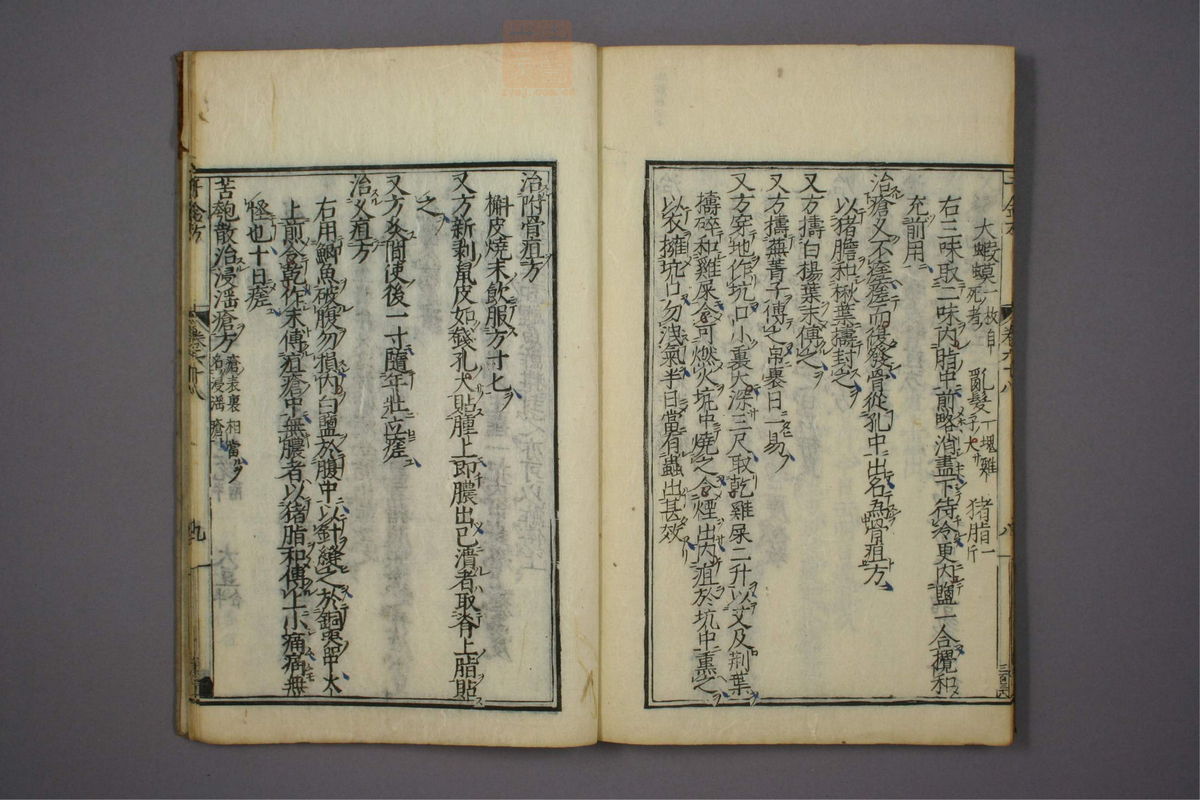 大蝦蟆一枚自死者 亂髮一塊雞子大 猪脂一斤
右三味取二味内脂中煎略消盡下待冷更内鹽一合攪和
充前用
治瘡久不瘥瘥而復發骨從孔中出名為骨疽方
以猪膽和楸葉擣封之
又方擣白楊葉末傅之
又方擣蕪菁子傅之帛裹日一易
又方穿地作坑口小裏大深三尺取乾雞屎二升以艾及荆葉
擣碎和雞屎令可燃火坑中燒之令煙出内疽於坑中熏之
以衣擁坑口勿洩氣半日當有蟲出甚效
治附骨疽方
槲皮燒末飲服方寸匕
又方新剥鼠皮如錢孔大貼腫上即膿出已潰者取脊上脂貼
之
又方灸間使後一寸隨年壯立瘥
治久疽方
右用鯽魚破腹勿損内白鹽於腹中以針縫之於銅器中火
上煎令乾作末傅疽瘡中無膿者以猪脂和傅以小痛痛無
怪也十日瘥
苦瓠散治浸淫瘡方瘡表裏相當名浸淫瘡
卷六十八
九